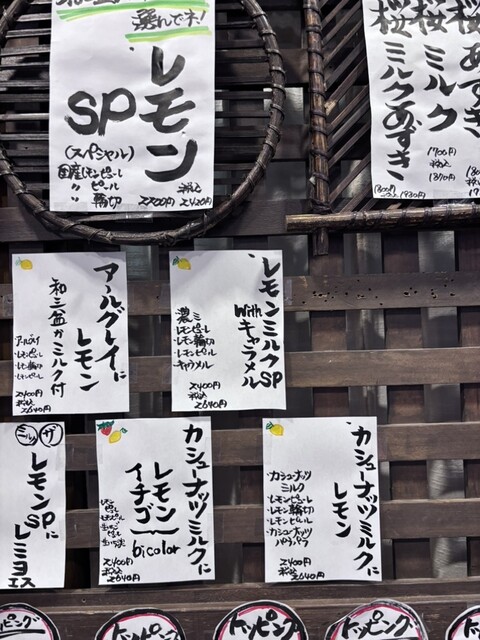 選んでネ!
レモン
SP
(スペシャル)
国産レモンピール
〃 ピール
〃 輪切
税込
2200円 2420円
桜あずき
桜ミルク
1700円
税込
1870円
桜ミルクあずき
アールグレイに
レモン
和三盆かミルク付
レモンピール
レモン輪切
レモンピール
2400円
税込
2640円
レモンミルクSP
Withキャラメル
濃ミ
レモンピール
レモン輪切
レモンピール
キャラメル
2400円
税込
2640円
ミルク
ザ
レモンSPに
レミヨエス
カシューナッツミルクに
レモン
イチゴ
bicolor
2400円
税込
2640円
カシューナッツミルクに
レモン
カシューナッツ
ミルク
レモンピール
レモン輪切
レモンピール
カシューナッツ
パラパラ
2400円
税込
2640円
トッピング
トッピング
トッピング
トッピング